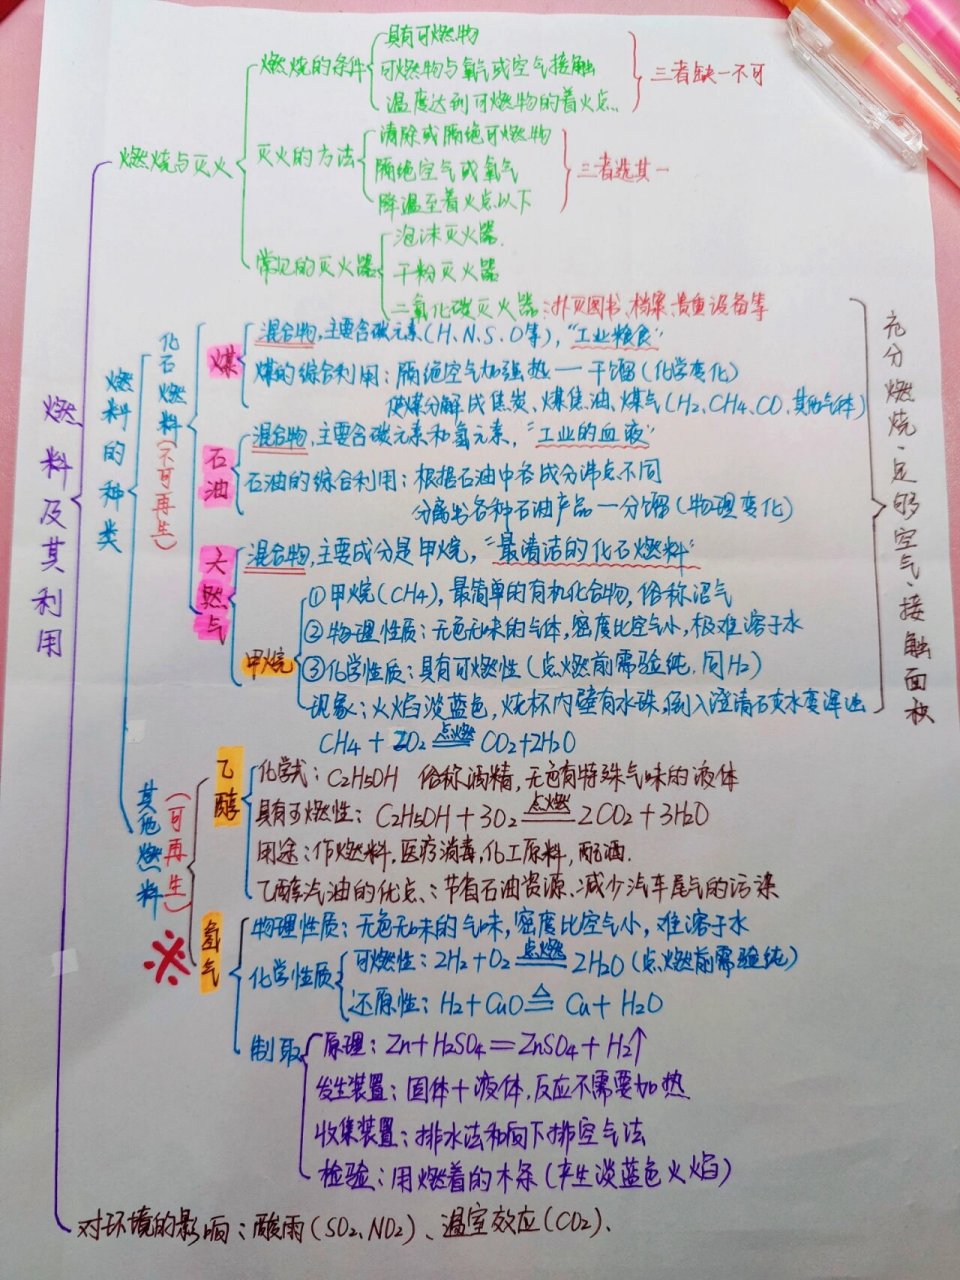 燃料及其利用
燃烧与灭火
燃烧的条件
具有可燃物
可燃物与氧气或空气接触
温度达到可燃物的着火点
三者缺一不可
灭火的方法
清除或隔绝可燃物
隔绝空气或氧气
降温至着火点以下
三者选其一
常见的灭火器
泡沫灭火器
干粉灭火器
二氧化碳灭火器:扑灭图书、档案、贵重设备等
燃料的种类
化石燃料(不可再生)
煤
混合物,主要含碳元素(H、N、S、O等),"工业粮食"
煤的综合利用:隔绝空气加强热——干馏(化学变化)
使煤分解成焦炭、煤焦油、煤气(H2、CH4、CO、其他气体)
石油
混合物,主要含碳元素和氢元素,"工业的血液"
石油的综合利用:根据石油中各成分沸点不同
分离出各种石油产品—分馏(物理变化)
天然气
混合物,主要成分是甲烷,"最清洁的化石燃料"
甲烷
①甲烷(CH4),最简单的有机化合物,俗称沼气
②物理性质:无色无味的气体,密度比空气小,极难溶于水
③化学性质:具有可燃性(点燃前需验纯,同H2)
现象:火焰淡蓝色,烧杯内壁有水珠,倒入澄清石灰水变浑浊
CH4 + 2O2 点燃 CO2+2H2O
充分燃烧:足够空气、接触面积
其他燃料(可再生)
※
乙醇
化学式:C2H5OH 俗称酒精,无色有特殊气味的液体
具有可燃性:C2H5OH + 3O2 点燃 2CO2 + 3H2O
用途:作燃料,医疗消毒,化工原料,配酒.
乙醇汽油的优点:节省石油资源、减少汽车尾气的污染
氢气
物理性质:无色无味的气味,密度比空气小,难溶于水
化学性质
可燃性:2H2+O2 点燃 2H2O(点燃前需验纯)
还原性:H2+CuO △ Cu+H2O
制取
原理:Zn+H2SO4=ZnSO4+H2↑
发生装置:固体+液体,反应不需要加热
收集装置:排水法和向下排空气法
检验:用燃着的木条(产生淡蓝色火焰)
对环境的影响:酸雨(SO2、NO2)、温室效应(CO2).